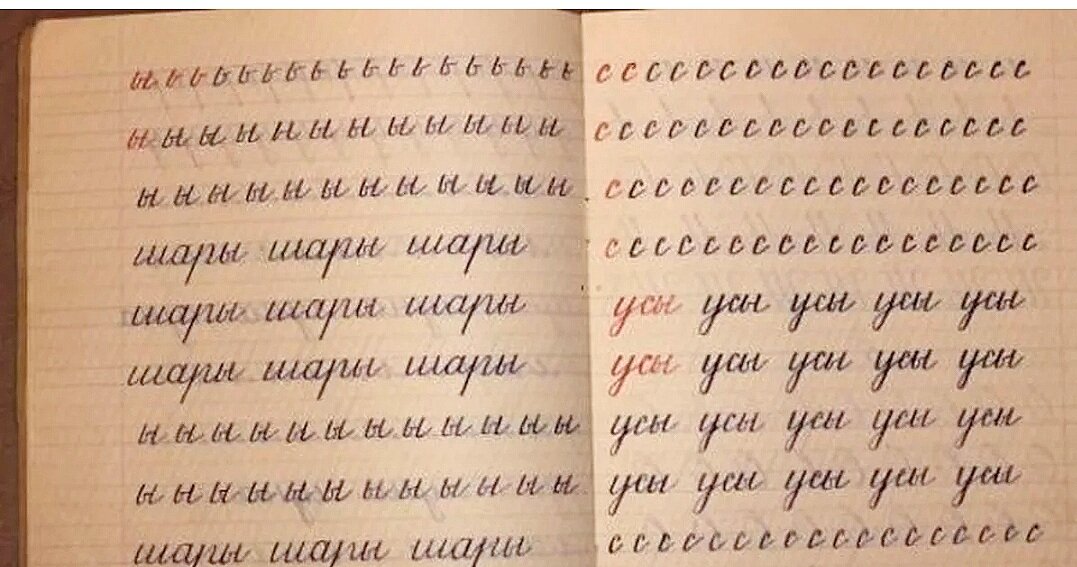 ы ь ь ь ь ь ь ь ь ь ь ь ь ь ь ь ь ь
ы ы ы ы ы ы ы ы ы ы ы ы
ы ы ы ы ы ы ы ы ы ы ы ы
шары шары шары
шары шары шары
шары шары шары
ы ы ы ы ы ы ы ы ы ы ы ы
ы ы ы ы ы ы ы ы ы ы ы ы
шары шары шары
с с с с с с с с с с с с с с с с с с
с с с с с с с с с с с с с с с с с с
с с с с с с с с с с с с с с с с с с
с с с с с с с с с с с с с с с с с с
усы усы усы усы усы
усы усы усы усы усы
усы усы усы усы усы
усы усы усы усы усы
с с с с с с с с с с с с с с с с с с